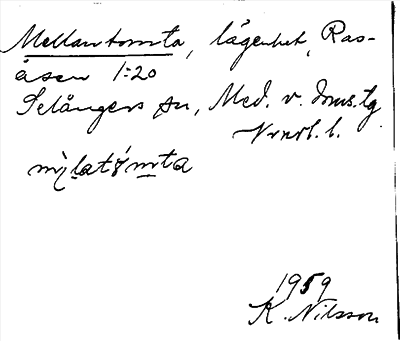 Mellantomta, lägenhet, Ras-
åsen 1:20
Selångers sn, Med. v. doms. tg
Vrnrl. l.
mὶlatómta
1959
K. Nilsson